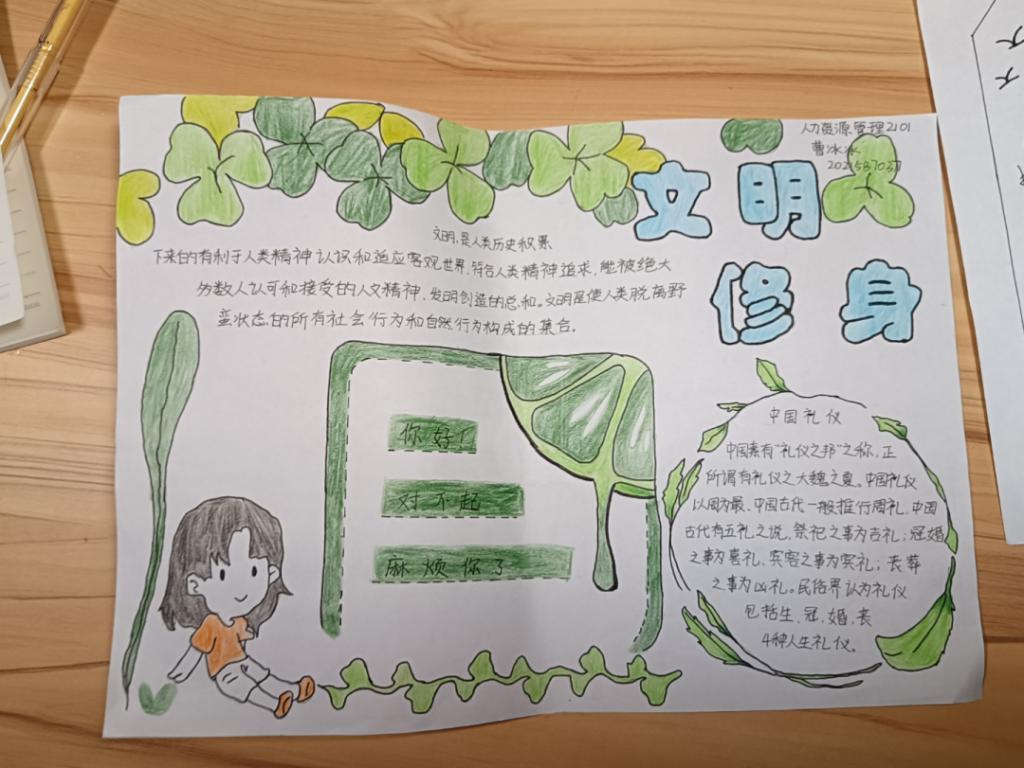 人力资源管理2101
曹冰冰
文明
修身
文明,是人类历史积累
下来的有利于人类精神认识和适应客观世界、符合人类精神追求,能被绝大
多数人认可和接受的人文精神、发明创造的总和。文明是使人类脱离野
蛮状态的所有社会行为和自然行为构成的集合。
你好!
对不起
麻烦你了
中国礼仪
中国素有“礼仪之邦”之称,正
所谓有礼仪之大魏之夏。中国礼仪
以周为最、中国古代一般推行周礼,中国
古代有五礼之说,祭祀之事为吉礼;冠婚
之事为喜礼、宾客之事为宾礼;丧葬
之事为凶礼。民俗界认为礼仪
包括生、冠、婚、丧
4种人生礼仪。